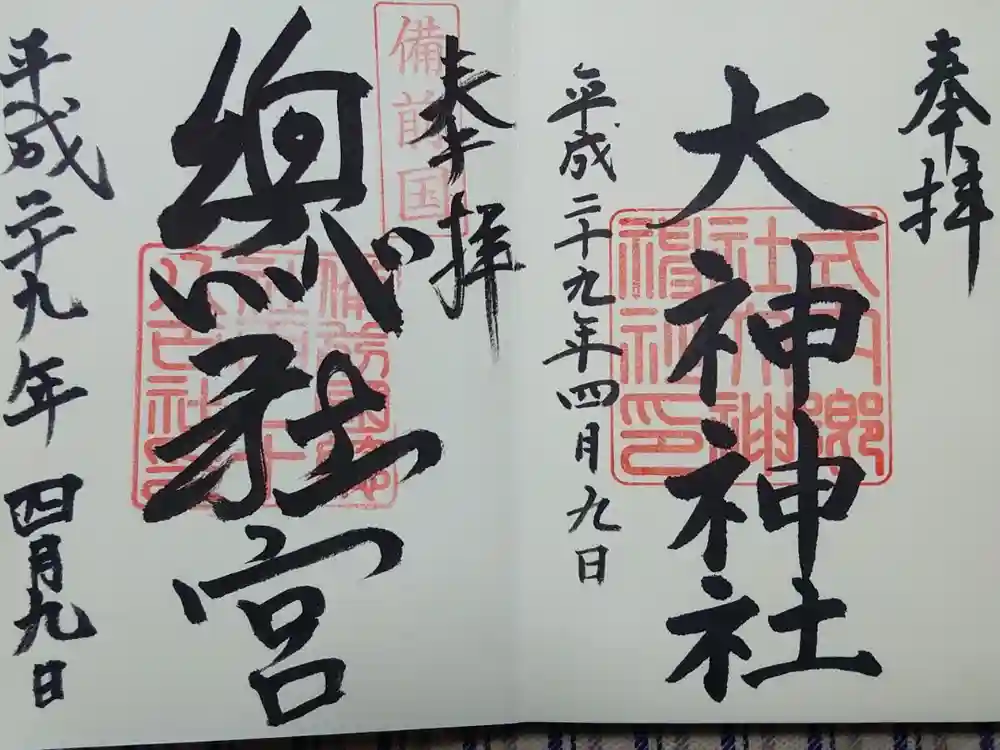 奉拝
大神神社
平成二十九年四月九日
奉拝
備前国
総社宮
平成二十九年四月九日